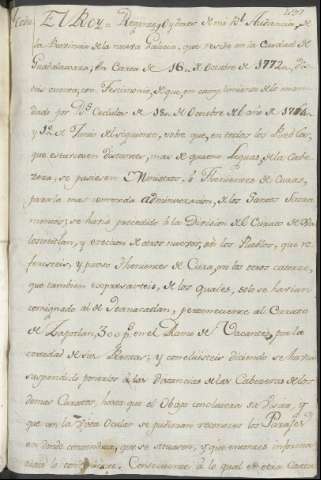 El Rey = Regente, y Oydores de mi Rl Audiencia, de
la Provincia de la nueva Galicia, que reside en la Ciudad de
Guadalaxara, En Carta de 16, de Octubre de 1772, dis
teis cuenta, con Testimonio, de que, en cumplimiento de lo man
dado por Rs Cedulas de 18, de Octubre del año de 1764
y 1º de Junio del siguiente, sobre que, en todos los Pueblos,
que estuviesen distantes, mas de quatro Leguas, de la Cabe
zera, se pusiesen Ministros, ó Thenientes de Curas,
para la mas comoda Administracion, de los Santos Sacra
mentos; se havia procedido á la Division del Curato de
y ereccion de otros nuevos, en los Pueblos, que re
feristeis, y puesto Thenientes de Cura, en los otros catorce,
que tambien expresasteis, de los quales, solo se havian
consignado al de Tamazatlan, perteneciente al Curato
de Zapotlan, 300 ps en el Ramo de Vacantes, por la
cortedad de sus Rentas; y concluisteis diciendo se havia
suspendido ponerlos á las Distancias de las Cabeceras de los
demas Curatos, hasta que el Obispo concluyera su Visita, y
que con la Vista Ocular se pudieran reconocer los Parajes
en donde convendria, que se situasen, y que entonces informa
riais lo conveniente. Consecuente á lo qual en otra Carta